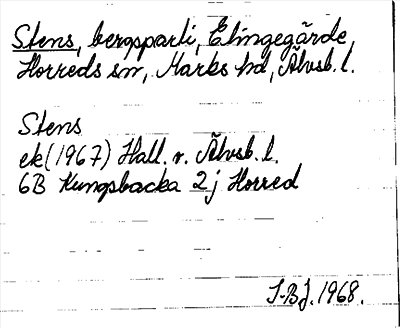 Stens, bergsparti, Elingegärde,
Horreds sn, Marks hd, Älvsb. l.
Stens
ek (1967) Hall. v. Älvsb. l.
6B Kungsbacka 2j Horred
I-BJ. 1968.